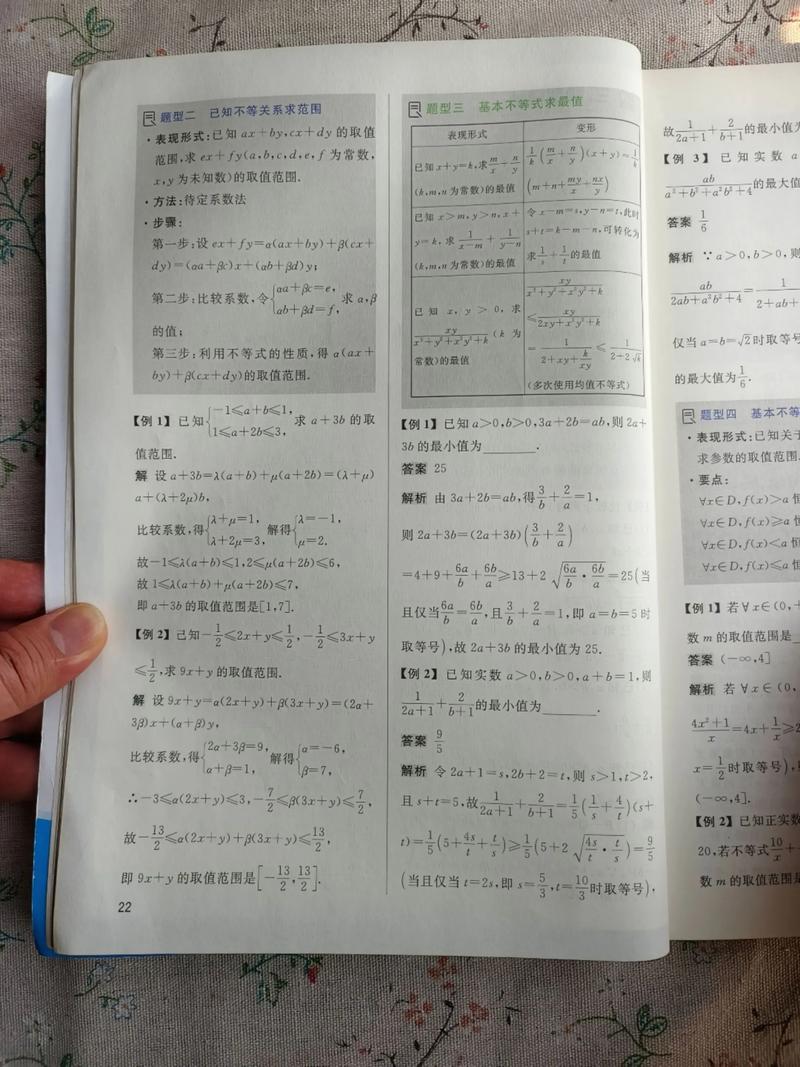 题型二 已知不等关系求范围
· 表现形式:已知 ax+by,cx+dy 的取值
范围,求 ex+fy(a,b,c,d,e,f 为常数,
x,y 为未知数)的取值范围.
· 方法:待定系数法
· 步骤:
第一步:设 ex+fy=α(ax+by)+β(cx+
dy)=(αa+βc)x+(αb+βd)y;
第二步:比较系数,令{αa+βc=e, αb+βd=f, 求 α,β
的值;
第三步:利用不等式的性质,得 α(ax+
by)+β(cx+dy)的取值范围.
【例 1】已知{-1≤a+b≤1, 1≤a+2b≤3, 求 a+3b 的取
值范围.
解 设 a+3b=λ(a+b)+μ(a+2b)=(λ+μ)
a+(λ+2μ)b,
比较系数,得{λ+μ=1, λ+2μ=3, 解得{λ=-1, μ=2.
故-1≤λ(a+b)≤1,2≤μ(a+2b)≤6,
故 1≤λ(a+b)+μ(a+2b)≤7,
即 a+3b 的取值范围是[1,7].
【例 2】已知-1/2≤2x+y≤1/2,-1/2≤3x+y
≤1/2,求 9x+y 的取值范围.
解 设 9x+y=α(2x+y)+β(3x+y)=(2α+
3β)x+(α+β)y,
比较系数,得{2α+3β=9, α+β=1, 解得{α=-6, β=7,
∴-3≤α(2x+y)≤3,-7/2≤β(3x+y)≤7/2,
故-13/2≤α(2x+y)+β(3x+y)≤13/2,
即 9x+y 的取值范围是[-13/2,13/2].
22
题型三 基本不等式求最值
表现形式 变形
已知 x+y=k,求 m/x+n/y
(k,m,n 为常数)的最值
1/k(m/x+n/y)(x+y)=1/k
(m+n+my/x+nx/y)
已知 x>m,y>n,x+
y=k,求 1/(x-m)+1/(y-n)
(k,m,n 为常数)的最值
令 x-m=s,y-n=t,此时
s+t=k-m-n,可转化为
求 1/s+1/t 的最值
已知 x,y>0,求
xy/(x²+y²+x²y²+k)(k 为
常数)的最值
xy/(x²+y²+x²y²+k)
≤xy/(2xy+x²y²+k)
=1/(2+xy+k/xy)≤1/(2+2√k)
(多次使用均值不等式)
【例 1】已知 a>0,b>0,3a+2b=ab,则 2a+
3b 的最小值为______.
答案 25
解析 由 3a+2b=ab,得 3/b+2/a=1,
则 2a+3b=(2a+3b)(3/b+2/a)
=4+9+6a/b+6b/a≥13+2√(6a/b·6b/a)=25(当
且仅当 6a/b=6b/a,且 3/b+2/a=1,即 a=b=5 时
取等号),故 2a+3b 的最小值为 25.
【例 2】已知实数 a>0,b>0,a+b=1,则
1/(2a+1)+2/(b+1)的最小值为______.
答案 9/5
解析 令 2a+1=s,2b+2=t,则 s>1,t>2,
且 s+t=5,故 1/(2a+1)+2/(b+1)=1/5(1/s+4/t)(s+
t)=1/5(5+4s/t+t/s)≥1/5(5+2√(4s/t·t/s))=9/5
(当且仅当 t=2s,即 s=5/3,t=10/3时取等号),
故 1/(2a+1)+2/(b+1)的最小值为
【例 3】已知实数 a
ab/(a²+b²+a²b²+4)的最大值
答案 1/6
解析 ∵a>0,b>0,则
ab/(2ab+a²b²+4)=1/(2+ab+
仅当 a=b=√2时取等号
的最大值为1/6.
题型四 基本不等
· 表现形式:已知关于
求参数的取值范围
· 要点:
∀x∈D,f(x)>a 恒
∀x∈D,f(x)≥a 恒
∀x∈D,f(x)<a 恒
∀x∈D,f(x)≤a 恒
【例 1】若∀x∈(0,+
数 m 的取值范围是
答案 (-∞,4]
解析 若∀x∈(0,
(4x²+1)/x=4x+1/x≥2
x=1/2时取等号),
(-∞,4].
【例 2】已知正实数
20,若不等式10/x+
数 m 的取值范围是